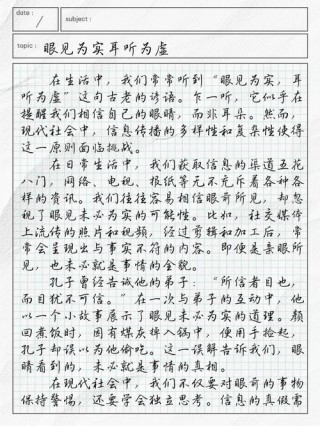 date :
/
subject:
topic: 眼见为实耳听为虚
在生活中，我们常常听到“眼见为实，耳
听为虚”这句古老的谚语。乍一听，它似乎在
提醒我们相信自己的眼睛，而非耳朵。然而，
现代社会中，信息传播的多样性和复杂性使得
这一原则面临挑战。
在日常生活中，我们获取信息的渠道五花
八门，网络、电视、报纸等无不充斥着各种各
样的资讯。我们往往容易相信眼前所见，却忽
视了眼见未必为实的可能性。比如，社交媒体
上流传的照片和视频，经过剪辑和加工后，常
常会呈现出与事实不符的内容。即便是亲眼所
见，也未必就是事情的全貌。
孔子曾经告诫他的弟子：“所信者目也，
而目犹不可信。”在一次与弟子的互动中，他
以一个小故事展示了眼见未必为实的道理。颜
回煮饭时，因有煤灰掉入锅中，便用手拾起，
孔子却误以为他偷吃。这一误解告诉我们，眼
睛看到的，未必就是事情的真相。
在现代社会中，我们不仅要对眼前的事物
保持警惕，还要学会独立思考。信息的真假需